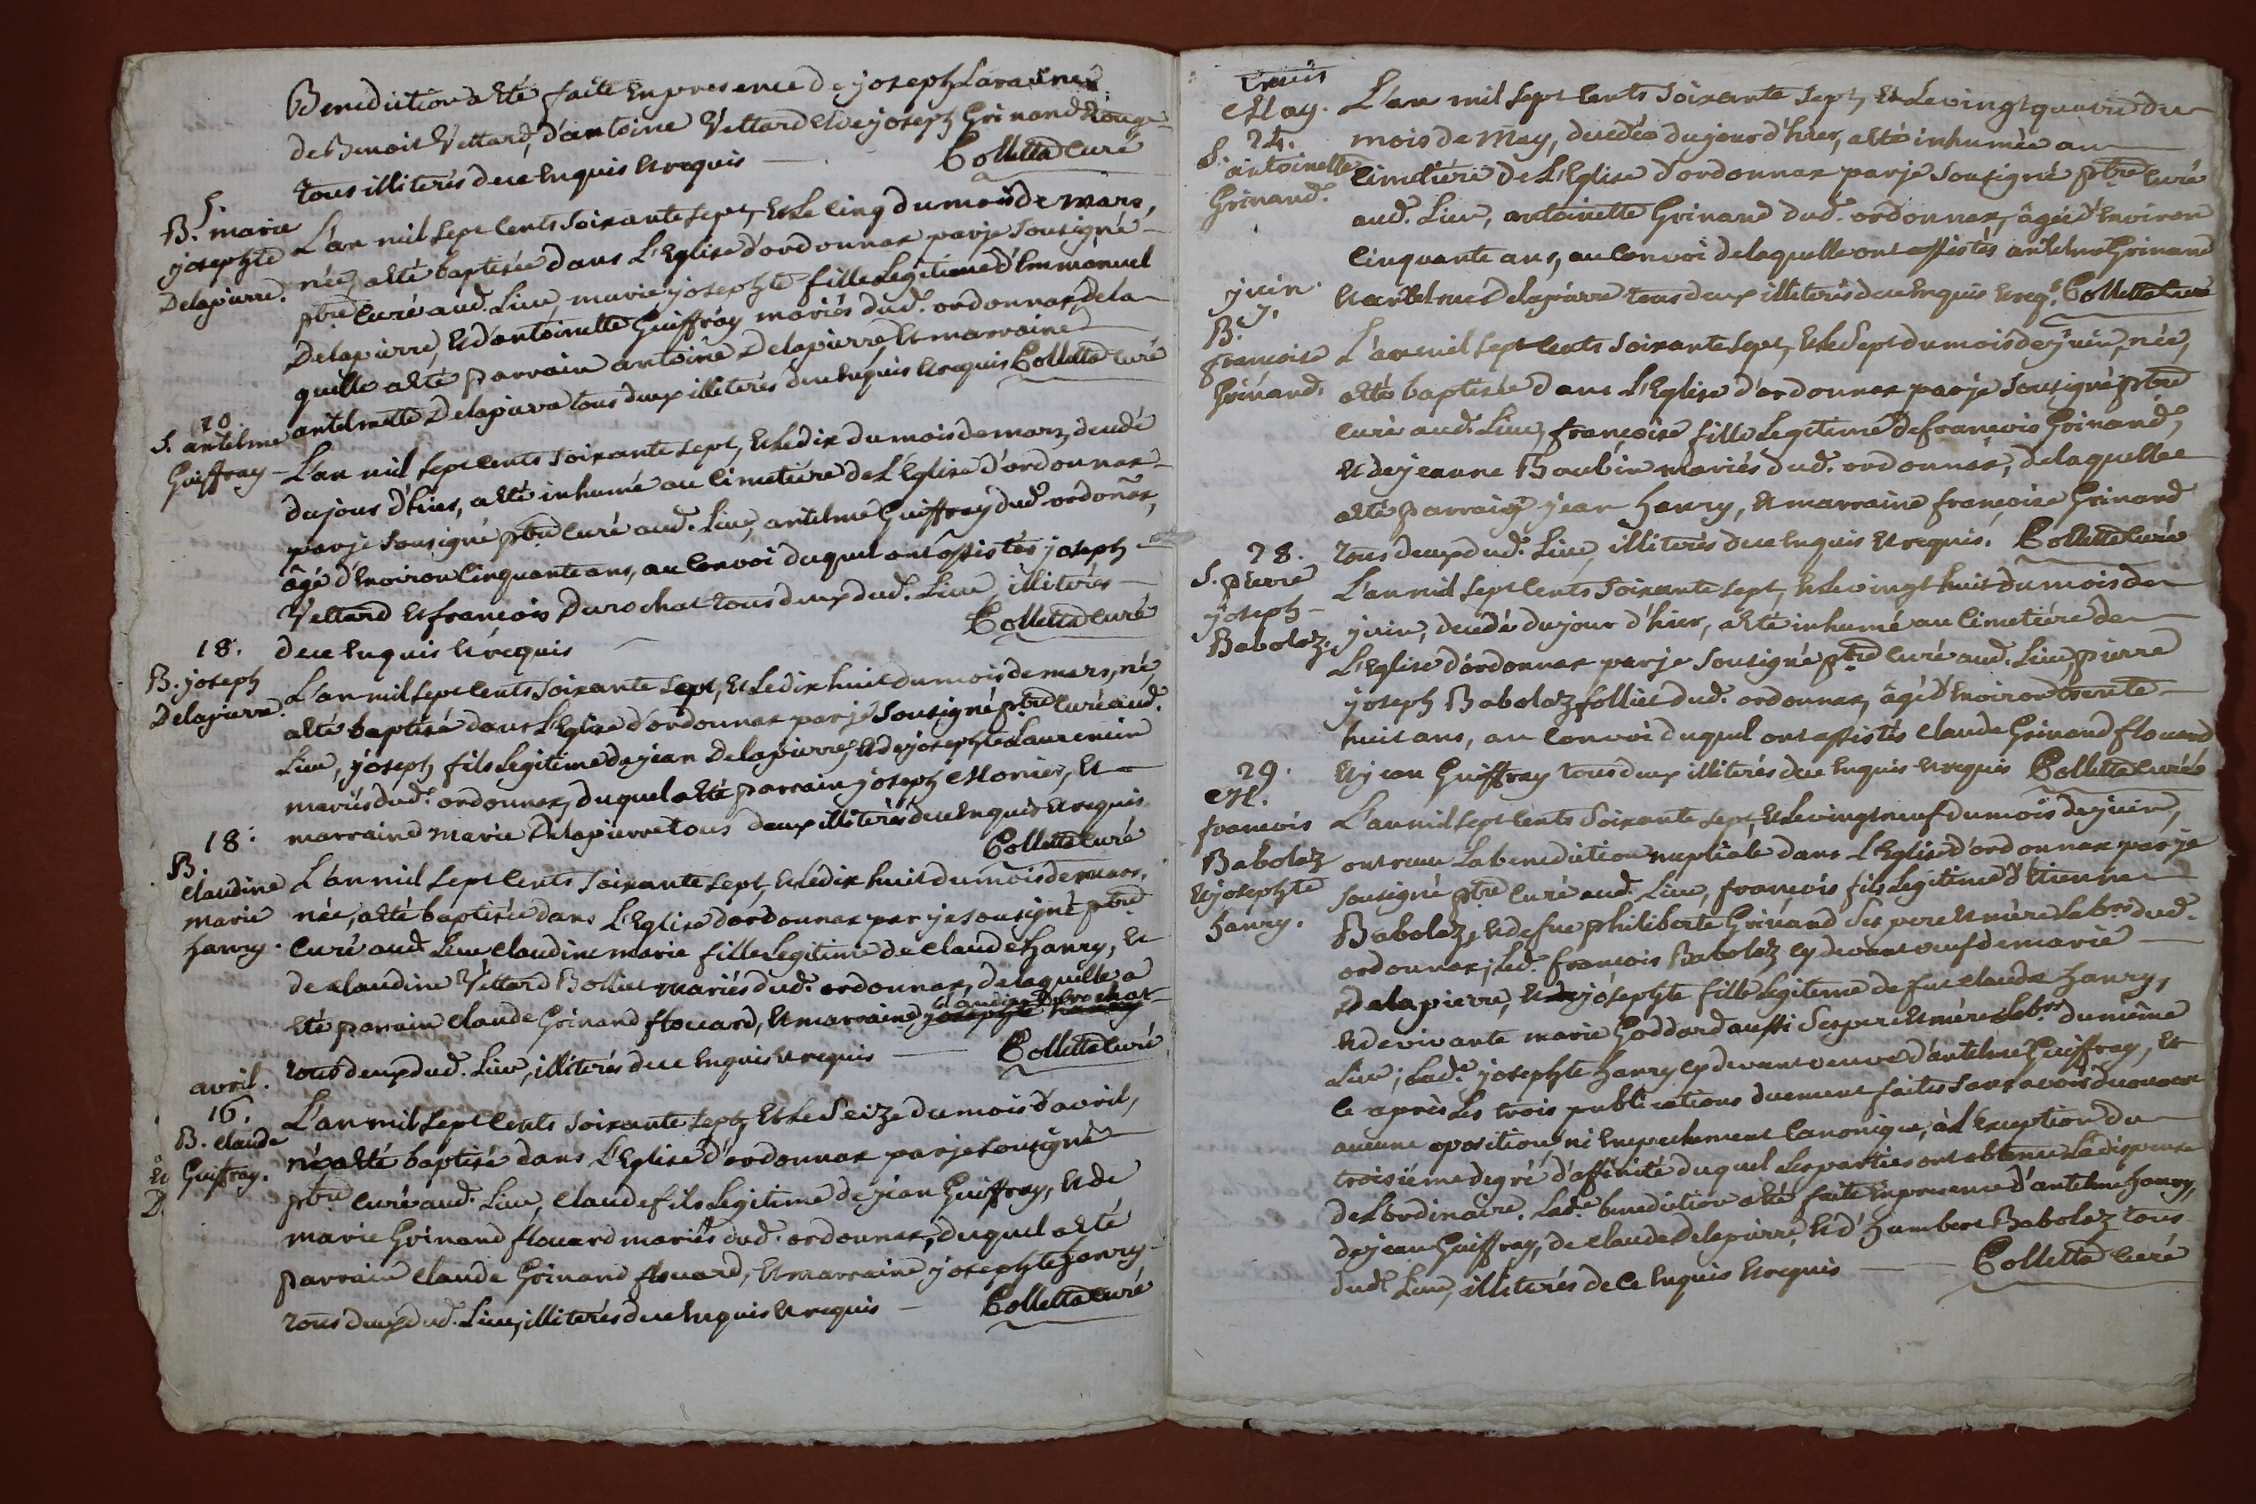 Benediction a êté faite en presence de joseph Laracine
de Benoit Vettard, d'antoine Vettard et de joseph Grinand Rouge
tous illiterés de ce enquis et requis — Colletta Curé
5.
B. marie
josephte
Delapierre.
L'an mil sept cents soixante sept, et le cinq du mois de mars,
née, a êté baptisée dans L'Eglise d'ordonnax par je sousigné
ptre curé aud. Lieu, marie josephte fille Legitime d'Emmanuel
Delapierre, et d'antoinette Guiffray mariés dud. ordonnax, de la
quelle a êté parrain antoine Delapierre, et marraine
antelmette Delapierre tous deux illiterés de ce enquis et requis Colletta Curé
10.
S. antelme
Guiffray
L'an mil sept cents soixante sept, et le dix du mois de mars, decedé
du jour d'hier, a êté inhumé au Cimetiére de L'Eglise d'ordonnax
par je sousigné ptre curé aud. Lieu, antelme Guiffray dud. ordoñax,
âgé d'Environ Cinquante ans, au Convoi duquel ont assistés joseph
Vettard et francois Durochat tous deux dud. Lieu, illiterés
de ce enquis et requis — Colletta Curé
18.
B. joseph
Delapierre.
L'an mil sept cents soixante sept, et le dix huit du mois de mars, né,
a êté baptisé dans L'Eglise d'ordonnax par je sousigné ptre curé aud.
Lieu, joseph fils Legitime de jean Delapierre, et de josephte Laurencin
mariés dud. ordonnax, duquel a êté parrain joseph Monier, et
marraine marie Delapierre tous deux illiterés de ce enquis et requis
Colletta Curé
18.
B.
claudine
marie
hanry.
L'an mil sept cents soixante sept, et le dix huit du mois de mars,
née, a êté baptisée dans L'Eglise d'ordonnax par je sousigné ptre
Curé aud. Lieu claudine marie fille Legitime de claude hanry, et
de claudine Vettard Bolliet mariés dud. ordonnax, de laquelle a
êté parrain claude Grinand flouard, et marraine claudine Durochat
josephte hanry
tous deux dud. Lieu, illiterés de ce enquis et requis — Colletta Curé
avril.
16.
B. claude
Guiffray.
et
D.
L'an mil sept cents soixante sept, et le seize du mois d'avril,
né, a êté baptisé dans L'Eglise d'ordonnax par je sousigné
ptre curé aud. Lieu, claude fils Legitime de jean Guiffray, et de
marie Grinand flouard mariés dud. ordonnax, duquel a êté
parrain claude Grinand flouard, et marraine josephte hanry
tous deux dud. Lieu, illiterés de ce enquis et requis — Colletta Curé
May.
24.
S.
antoinette
Grinand.
L'an mil sept cents soixante sept, et le vingt quatre du
mois de May, decedée du jour d'hier, a êté inhumée au
Cimetiére de L'Eglise d'ordonnax par je sousigné ptre Curé
aud. Lieu, antoinette Grinand dud. ordonnax, âgée d'Environ
Cinquante ans, au Convoi de laquelle ont assistés antelme Grinand
et antelme Delapierre tous deux illiterés de ce enquis et req. Colletta Curé
juin.
7.
B.
francoise
Grinand.
L'an mil sept cents soixante sept, et le sept du mois de juin, née,
a êté baptisée dans L'Eglise d'ordonnax par je sousigné ptre
curé aud. Lieu, francoise fille Legitime de francois Grinand,
et de jeanne Baubin mariés dud. ordonnax, de laquelle
a êté parrain jean hanry, et marraine francoise Grinand
tous deux dud. Lieu, illiterés de ce enquis et requis. Colletta Curé
28.
S. pierre
joseph
Babolaz.
L'an mil sept cents soixante sept, et le vingt huit du mois de
juin, decedé du jour d'hier, a êté inhumé au Cimetiére de
L'Eglise d'ordonnax par je sousigné ptre curé aud. Lieu pierre
joseph Babolaz folliet dud. ordonnax, âgé d'Environ trente
huit ans, au Convoi duquel ont assistés claude Grinand flouard
et jean Guiffray tous deux illiterés de ce enquis et requis Colletta Curé
29.
M.
francois
Babolaz
et josephte
hanry.
L'an mil sept cents soixante sept, et le vingt neuf du mois de juin,
ont recu la benediction nuptiale dans L'Eglise d'ordonnax par je
sousigné ptre curé aud. Lieu, francois fils Legitime d'Etienne
Babolaz, et de fue philiberte Grinand ses pere et mère Labrs dud.
ordonnax; led. francois Babolaz cy devant veuf de marie
Delapierre, et josephte fille Legitime de feu claude hanry,
et de vivante marie Goddard aussi ses pere et mère Labrs du même
Lieu; Lad.e josephte hanry cy devant veuve d'antelme Guiffray, et
ce après Les trois publications duement faites sans avoir decouvert
aucune oposition, ni Empechement Canonique, à L'Exception du
troisiéme degré d'affinité duquel Les parties ont obtenu La dispense
de L'ordinaire. Lad.e benediction a êté faite en presence d'antelme hanry,
de jean Guiffray, de claude Delapierre, et d'humbert Babolaz tous
dud. Lieu, illiterés de Ce enquis et requis — Colletta Curé